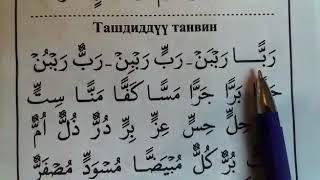 Ташдиддүү танвин
رَبًّـــا رَبْبَنْ - رَبٍّ رَبْبِنْ - رَبٌّ رَبْبُنْ
بَرًّا جَرًّا مَسًّا كَفًّا مَنًّا سِتٍّ
حِلٍّ حِسٍّ عِزٍّ بِرٍّ دُرٌّ ذُلٌّ اُمٌّ
بُرٌّ كُلٌّ مُبْيَضًّا مُسْوَدٍّ مُصْفَرٌّ